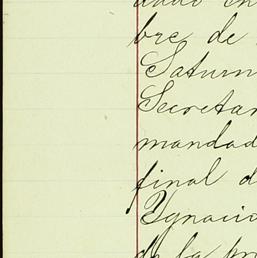 bre de
Saturn
Secretar
mandad
final d
Ygnacio
de la pr